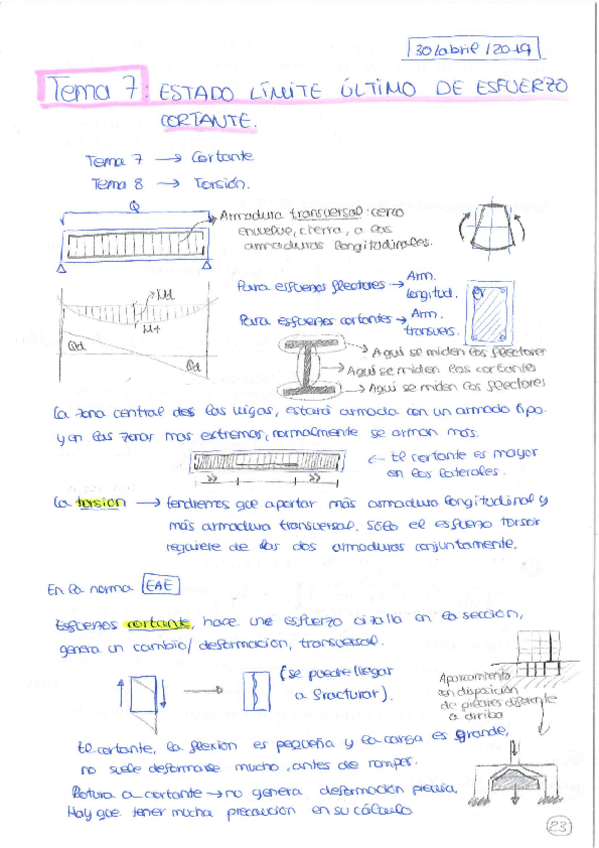 30/abril/2019
Tema 7: ESTADO LÍMITE ÚLTIMO DE ESFUERZO
CORTANTE.
Tema 7 → Cortante
Tema 8 → Torsión.
Q
Armadura transversal: cerco
envuelve, cierra, a las
armaduras longitudinales.
Para esfuerzos flectores → Arm.
longitud.
Para esfuerzos cortantes → Arm.
transvers.
Md
M+
Qd
Qd
Aqui se miden los flectores
Aqui se miden los cortante
Aqui se miden los flectores
La zona central des las vigas, estará armada con un armado tipo.
y en las zonas mas extremas, normalmente se arman más.
← El cortante es mayor
en los laterales.
La torsión → tendremos que aportar más armadura longitudinal y
más armadura transversal. Sólo el esfuerzo torsor
requiere de las dos armaduras conjuntamente.
En la norma EAE
Esfuerzos cortante, hace une esfuerzo cizalla en la sección,
genera un cambio/deformación, transversal.
(se puede llegar
a fracturar).
Aparcamiento
en disposición
de pilares diferente
a arriba
El cortante, la flexión es pequeña y la carga es grande,
no suele deformarse mucho, antes de romper.
Rotura a cortante → no genera deformación previa,
Hay que tener mucha precaución en su cálculo
23